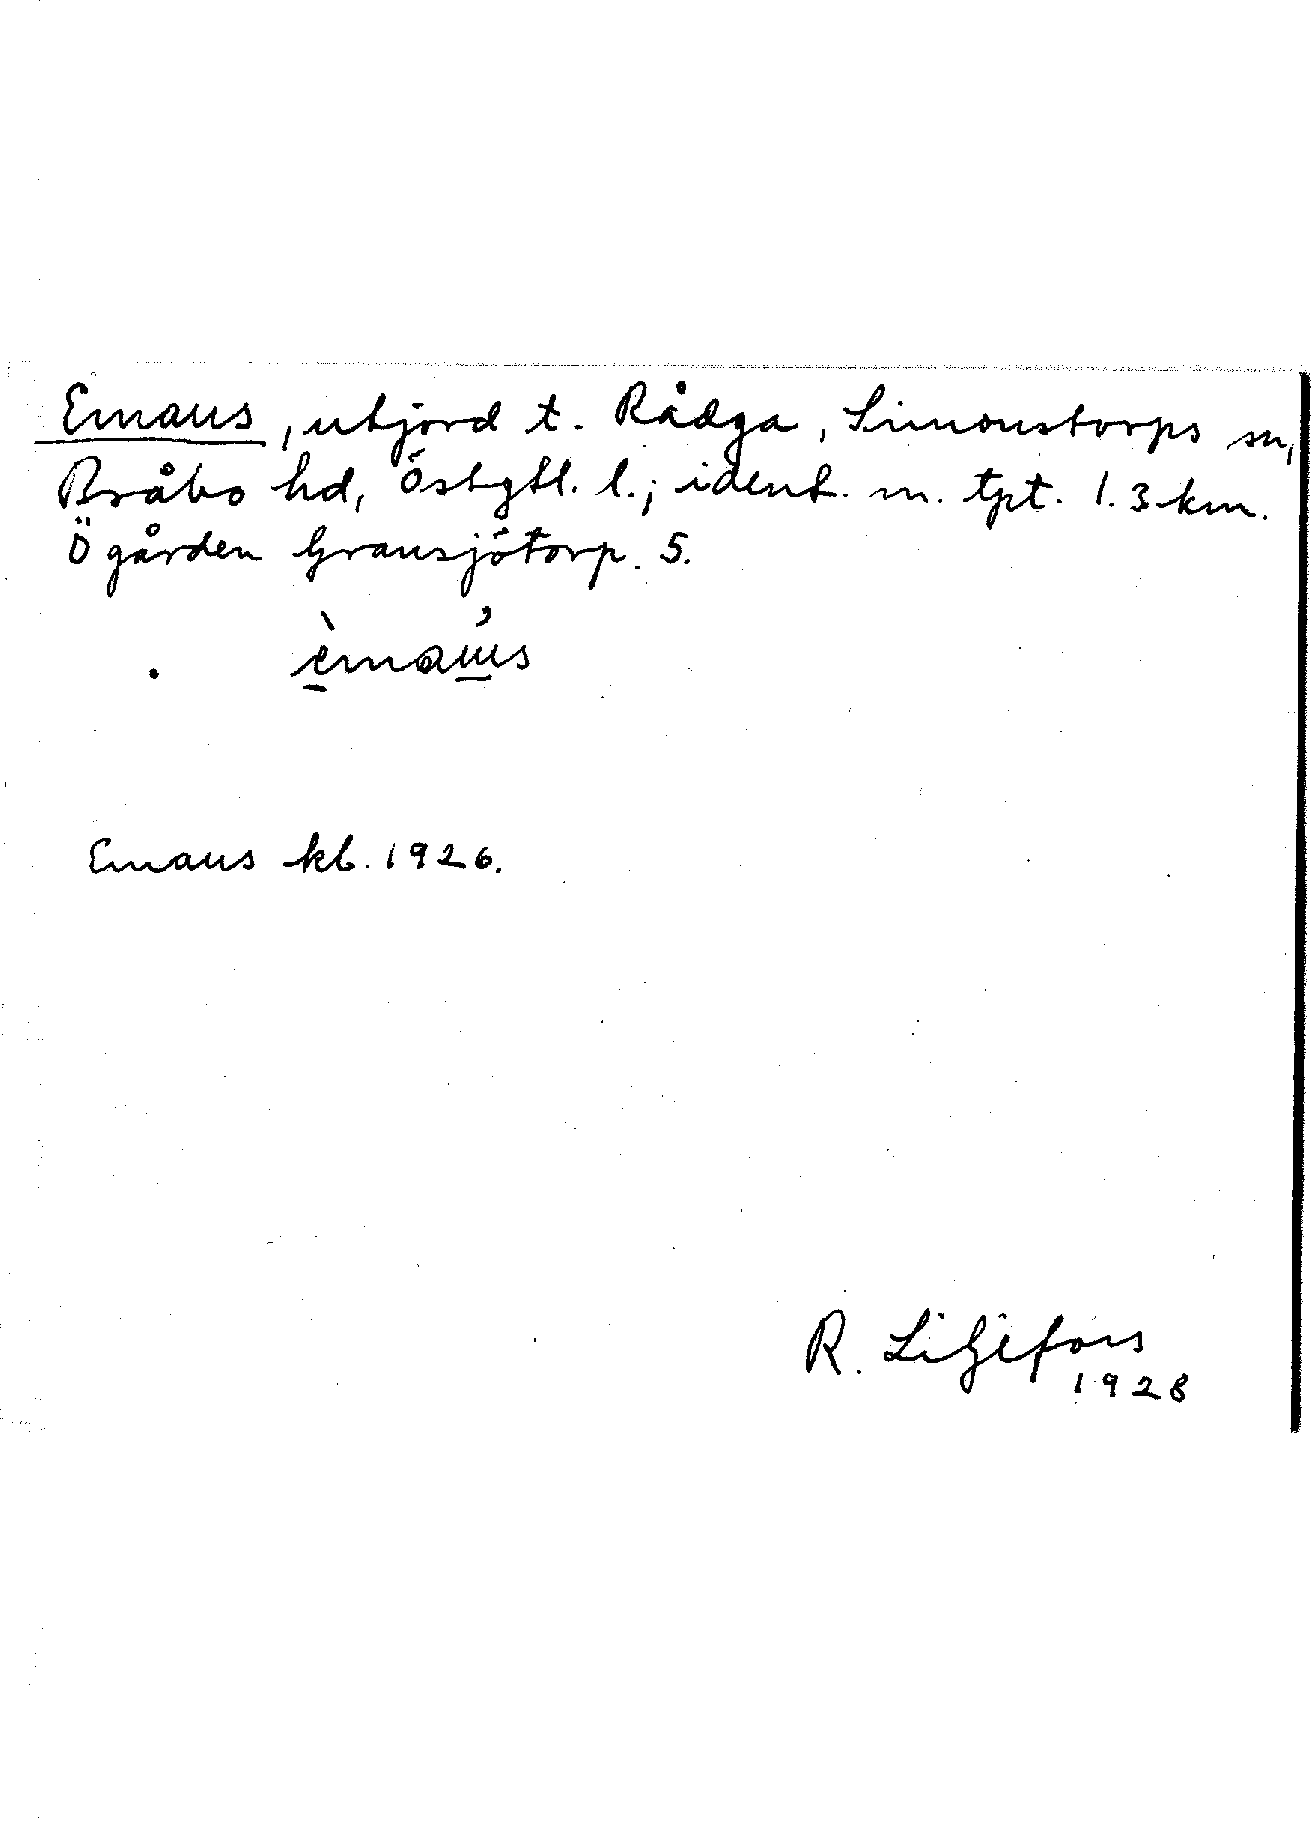 Emaus, utjord t. Rådga, Simonstorps sn,
Bråbo hd, Östgtl. l.; ident. m. tpt. 1.3 km.
Ö gården Gransjötorp. 5.
èmaus
Emaus kb. 1926.
R. Liljefors
1928